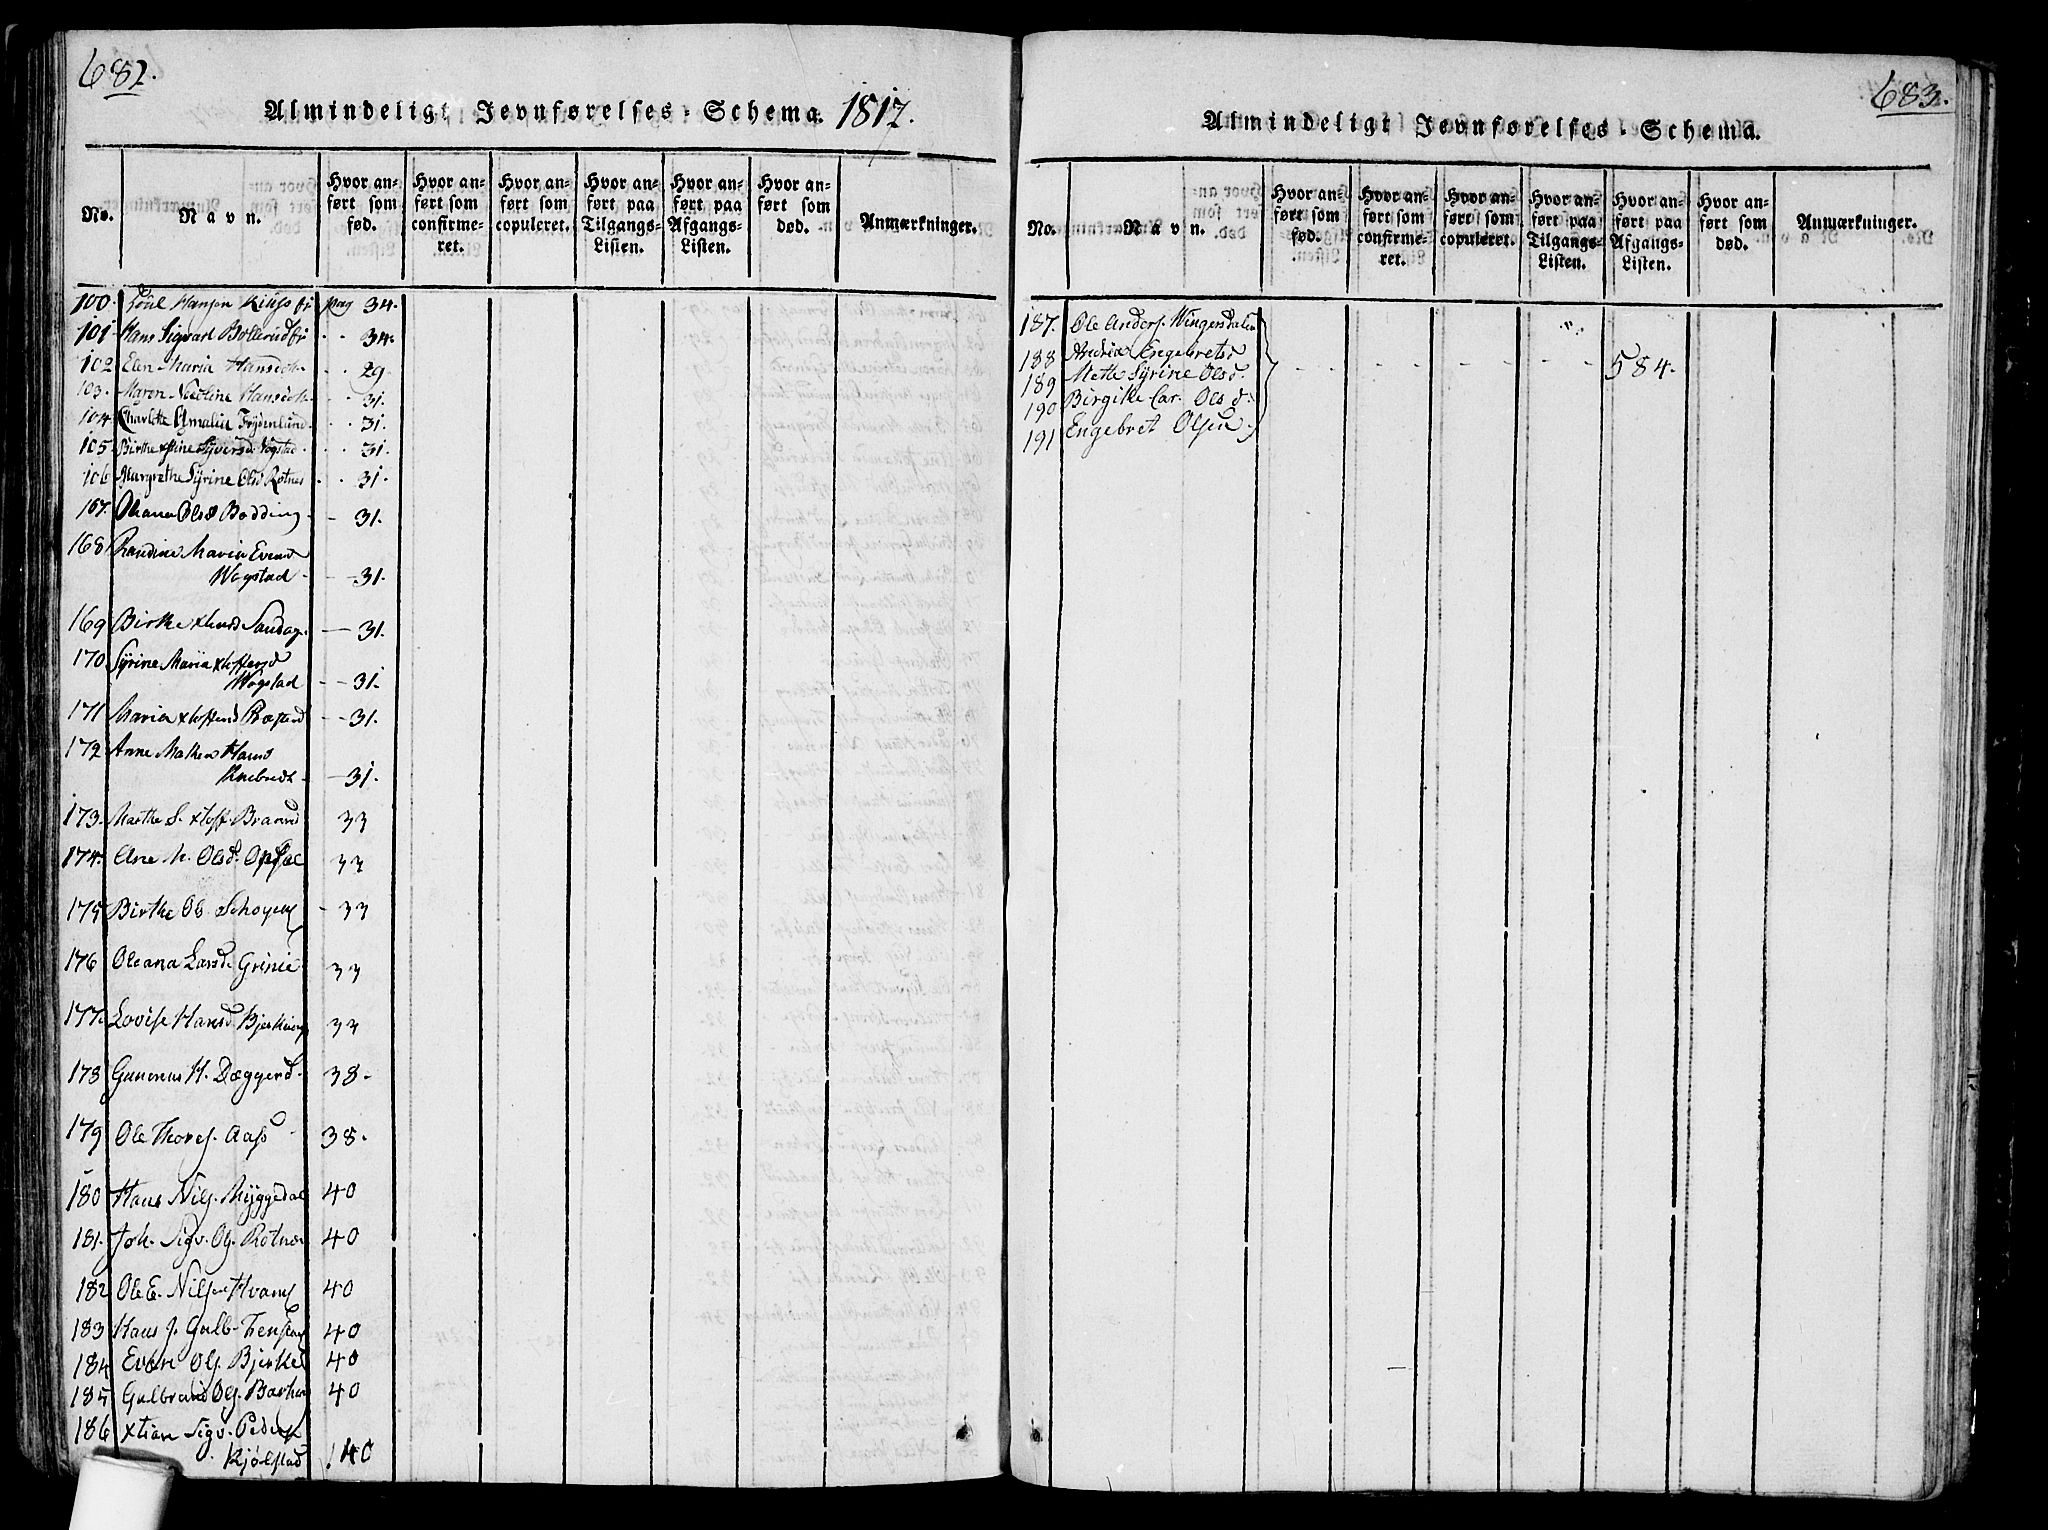 682.
Almindeligt Jevnførelses-Schema. 1817.
No.
Navn.
Hvor anført som fød.
Hvor anført som confirmeret.
Hvor anført som copuleret.
Hvor anført paa Tilgangs-Listen.
Hvor anført paa Afgangs-Listen.
Hvor anført som død.
Anmærkninger.
100. Poul Hansen pag 34.
101 Hans Sigvart Bollerud - - 34.
102 Elen Maria Hansd. - - 29
103. Maren Hansd. - - 31.
104 Charlotte Amalie Frydenlund - - 31.
105. Birthe Syversd Vogstad - - 31.
106 Margrethe Syrine Olsd Rotnes - - 31.
107. Oleana Olsd Bødding - 31.
168 Randine Maria Evensd
Wogstad - - 31.
169 Birthe Sandag. - 31.
170 Syrine Maria xtoffersd
Wogstad - - 31.
171 Maria xtoffersd - - 31.
172 Anne Mathea Hansd
- 31.
173. Marthe S. xtoff. Braarud 33
174. Ane M. Olsd. Opsal 33
175 Birthe Ol. Schøyen - 33
176 Oleana Larsd. Grinie 33
177. Lovise Hansd. 33
178 Gunerus H. Dæggerud 38.
179 Ole Thores. Aass 38.
180 Hans Nils. Myggedal 40
181. Joh. Sigv. Ols. Rotnæs 40
182 Ole E. Nilsen Hvam 40
183 Hans J. Gulb. 40
184 Even Ols. Bjerke 40
185 Gulbrand Ols. 40
186 xtian Sigv. Peders
Kjølstad 140
683.
Almindeligt Jevnførelses-Schema.
No.
Navn.
Hvor anført som fød.
Hvor anført som confirmeret.
Hvor anført som copuleret.
Hvor anført paa Tilgangs-Listen.
Hvor anført paa Afgangs-Listen.
Hvor anført som død.
Anmærkninger.
187. Ole Anders. Wingersdalen
188 Andrea Engebretsd
189 Mette Syrine Olsd. - - - - - 584.
190 Birgitte Car. Olsd.
191 Engebret Olsen